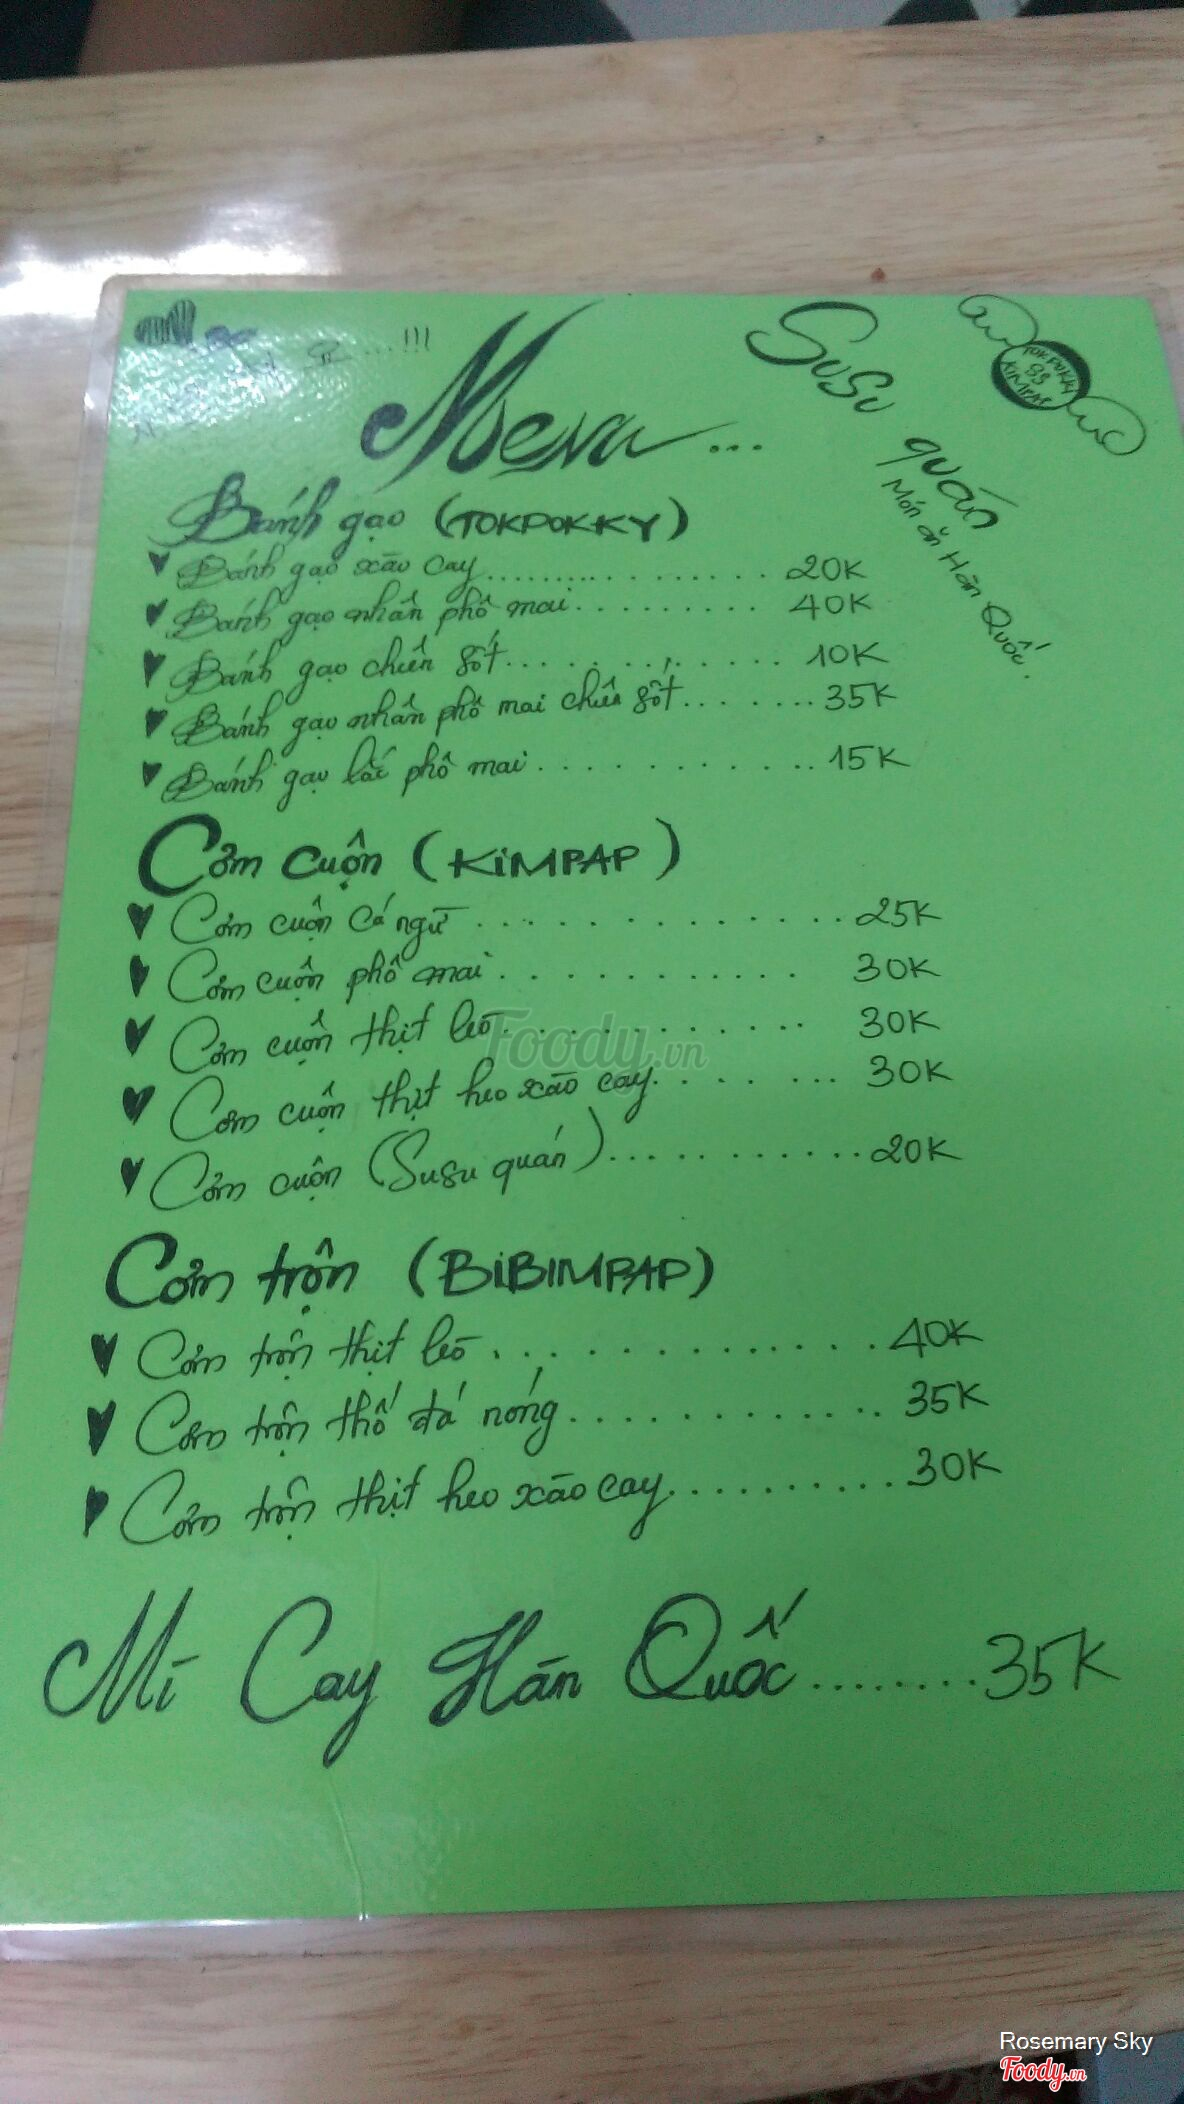 Menu...
Susu
quán
Món ăn Hàn Quốc.
TOKPOKKY
SS
KIMPAP
Bánh gạo (TOKPOKKY)
Bánh gạo xào cay.................. 20K
Bánh gạo nhân phô mai.......... 40K
Bánh gạo chiên sốt............ 10K
Bánh gạo nhân phô mai chiên sốt....... 35K
Bánh gạo lắc phô mai............ 15K
Cơm cuộn (KIMPAP)
Cơm cuộn cá ngừ............ 25K
Cơm cuộn phô mai.......... 30K
Cơm cuộn thịt bò........... 30K
Cơm cuộn thịt heo xào cay....... 30K
Cơm cuộn (Susu quán)........... 20K
Cơm trộn (BIBIMPAP)
Cơm trộn thịt bò............. 40K
Cơm trộn thố đá nóng............ 35K
Cơm trộn thịt heo xào cay.......... 30K
Mì Cay Hàn Quốc........35K
Foody.vn
Rosemary Sky
Foody.vn